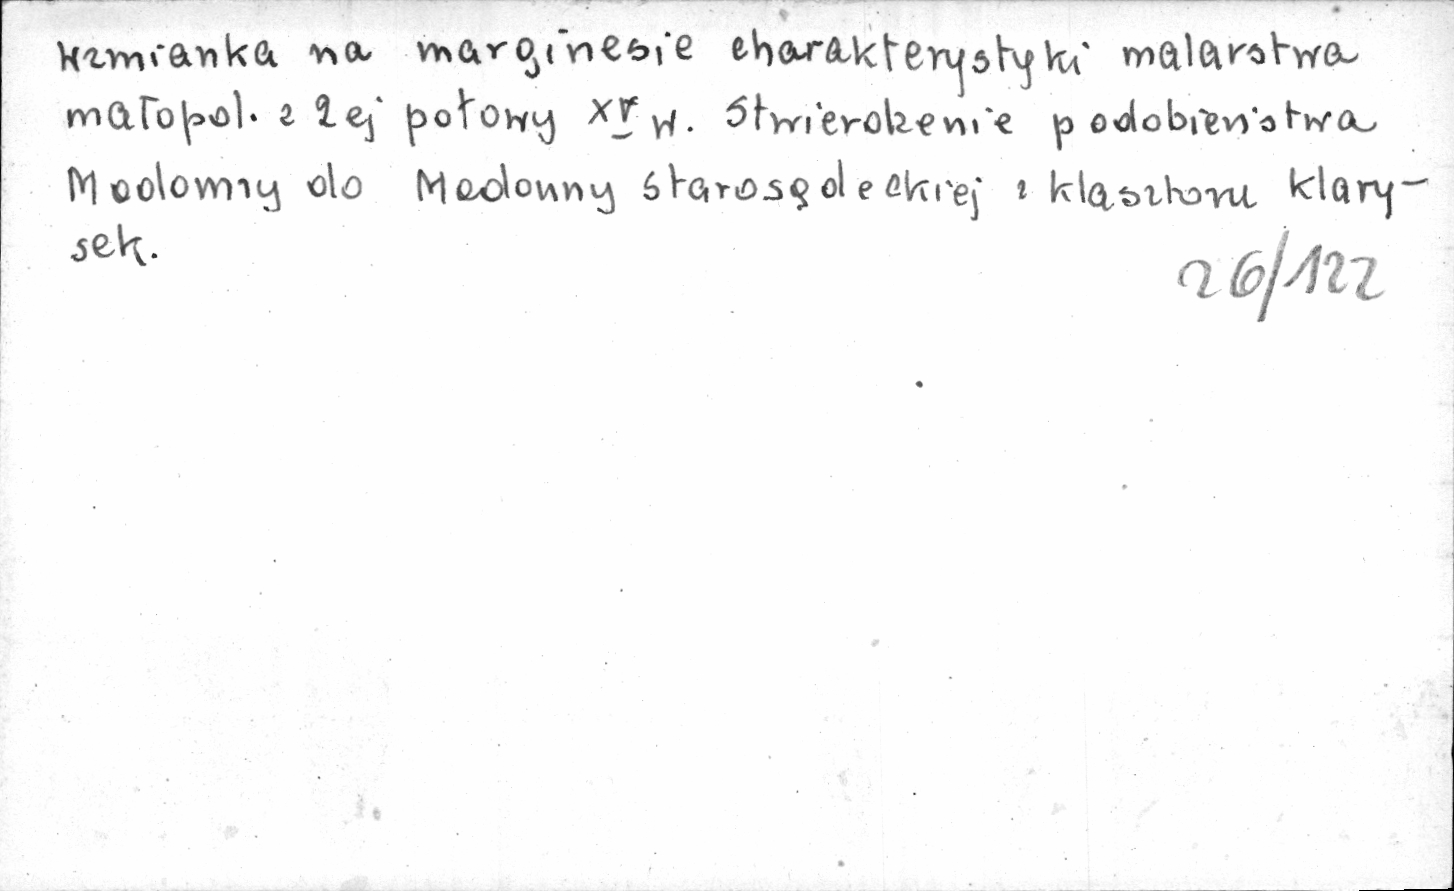 Wzmianka na marginesie charakterystyki malarstwa
małopol. z 2ej połowy XV w. Stwierdzenie podobieństwa
Madonny do Madonny starosądeckiej z klasztoru klary-
sek.
26/122